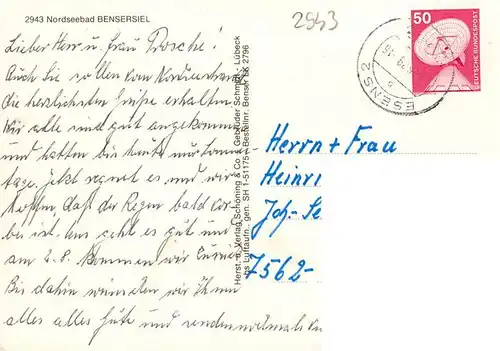 2943 Nordseebad BENSERSIEL
2943
Lieber Herr u. Frau Drosche!
Auch Sie sollen vom Nordseestrand
die herzlichsten Grüße erhalten.
Wir alle sind gut angekommen
und hatten bis heute nur Sonnen-
tage. Jetzt regnet es und wir
hoffen, daß der Regen bald vor-
bei ist. Uns geht es gut und
am 2.8. kommen wir zurück
Bis dahin wünschen wir Ihnen
alles alles Gute und senden nochmals
Herst. u. Verlag Schöning & Co + Gebrüder Schmidt, Lübeck
Luftaufn., gen. SH 1-51175 Bestellnr. Bensersk 2796
50
DEUTSCHE BUNDESPOST
ESENS 2
Herrn + Frau
Heinri
Joh.-Se
7562-